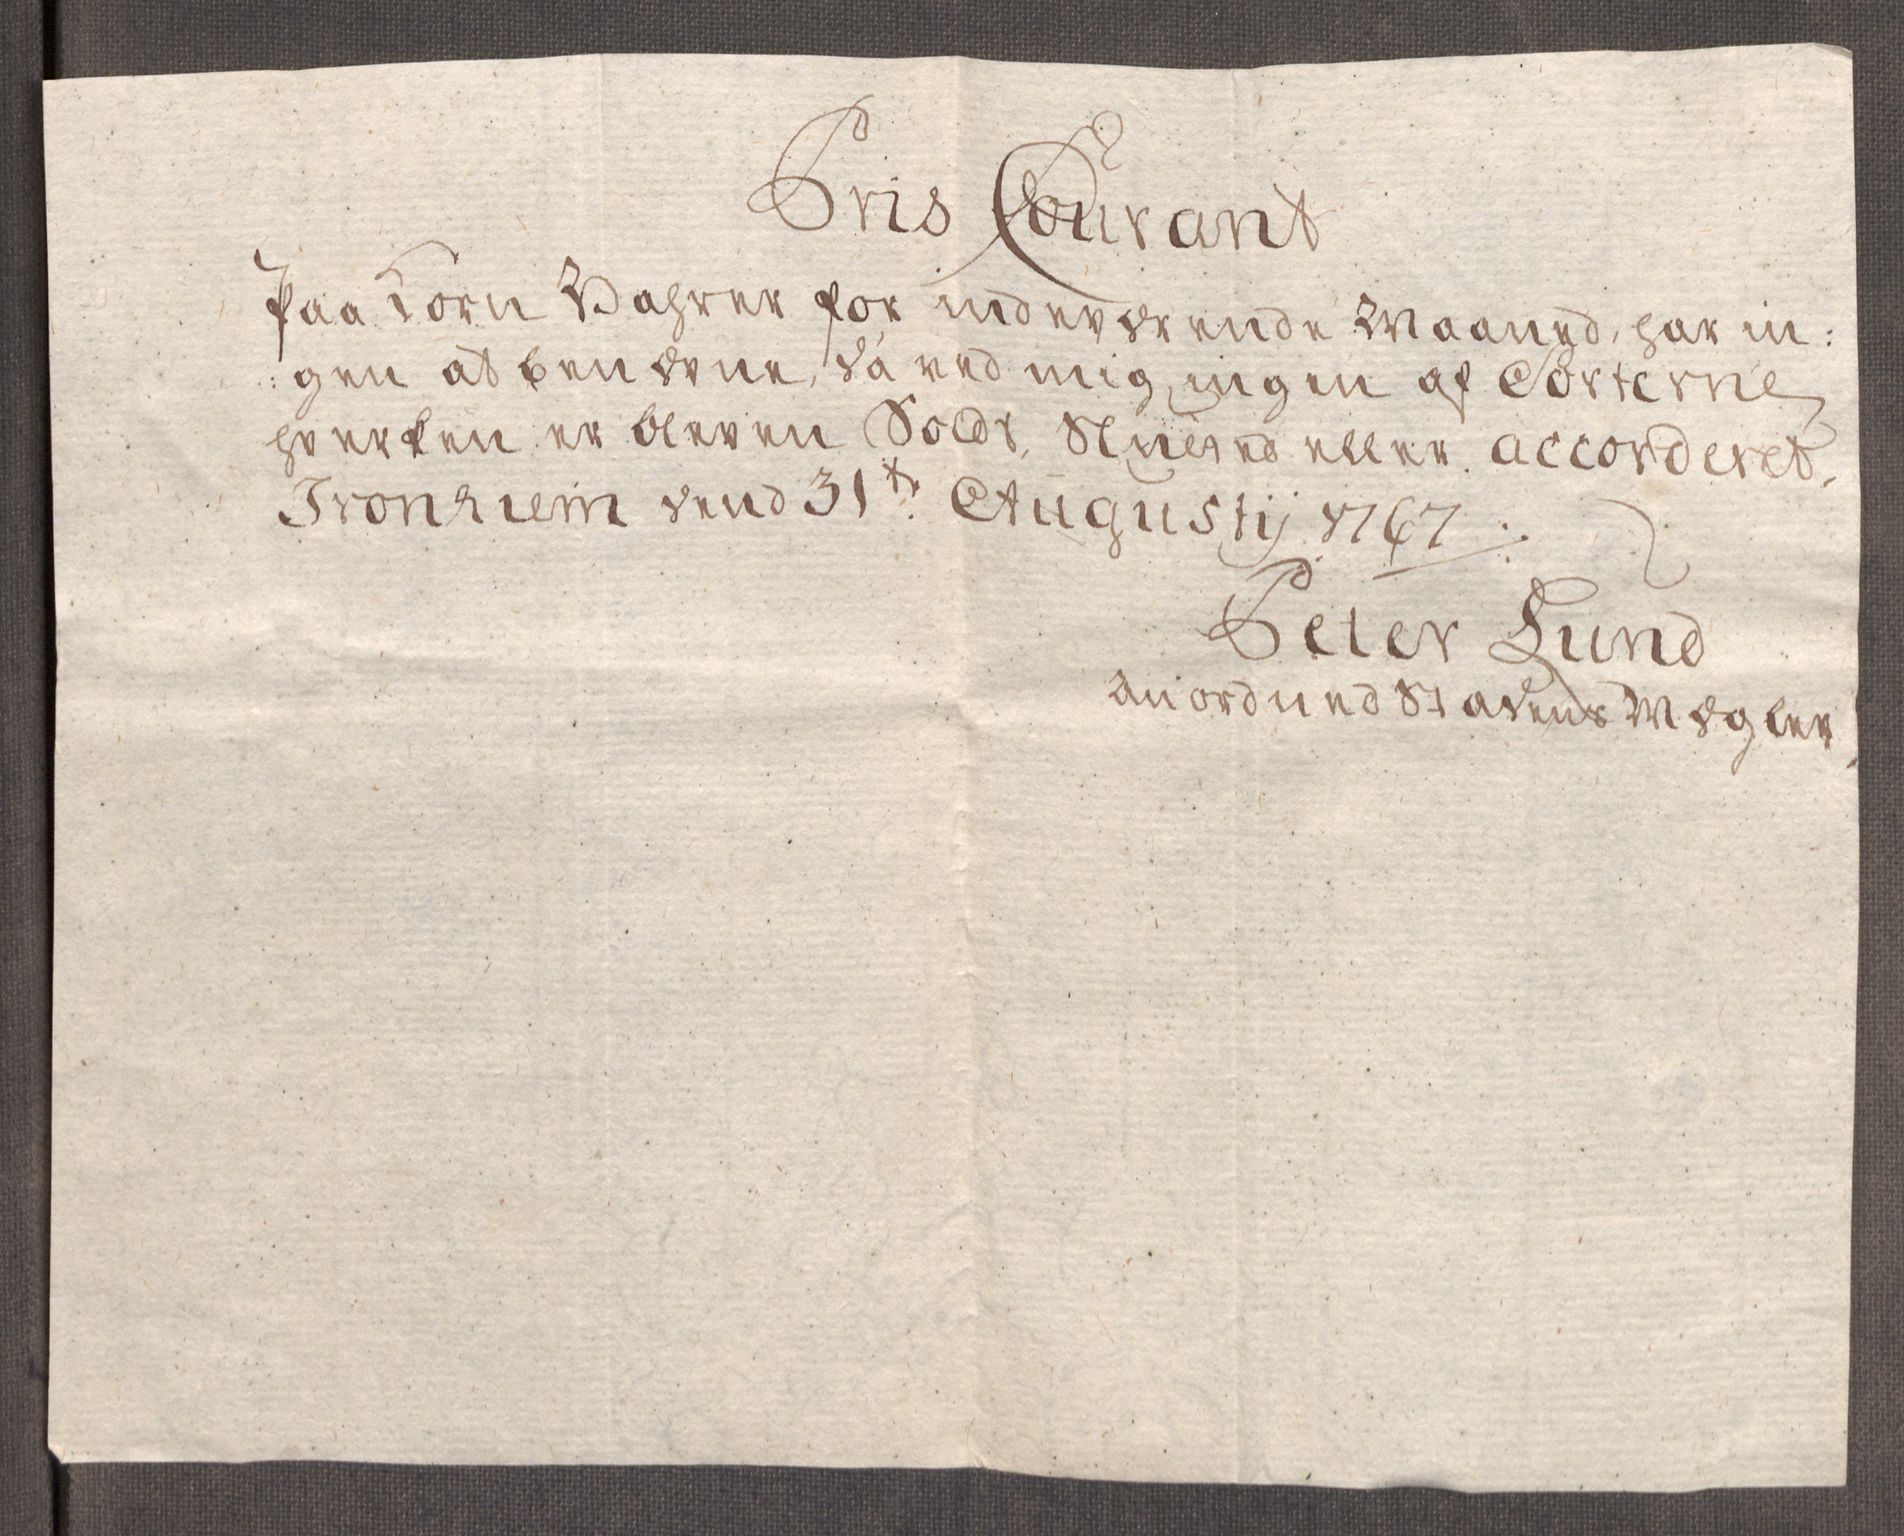 Pris Courant
Paa Korn Vahrer for indeværende Maaned, har in:
:gen at benævne, da ved mig ingen af Sorterne
hverken er bleven Soldt, Slutted eller accorderet,
Tronhiem dend 31te Augustij 1767
Peter Lund
anordned Stadens Mægler